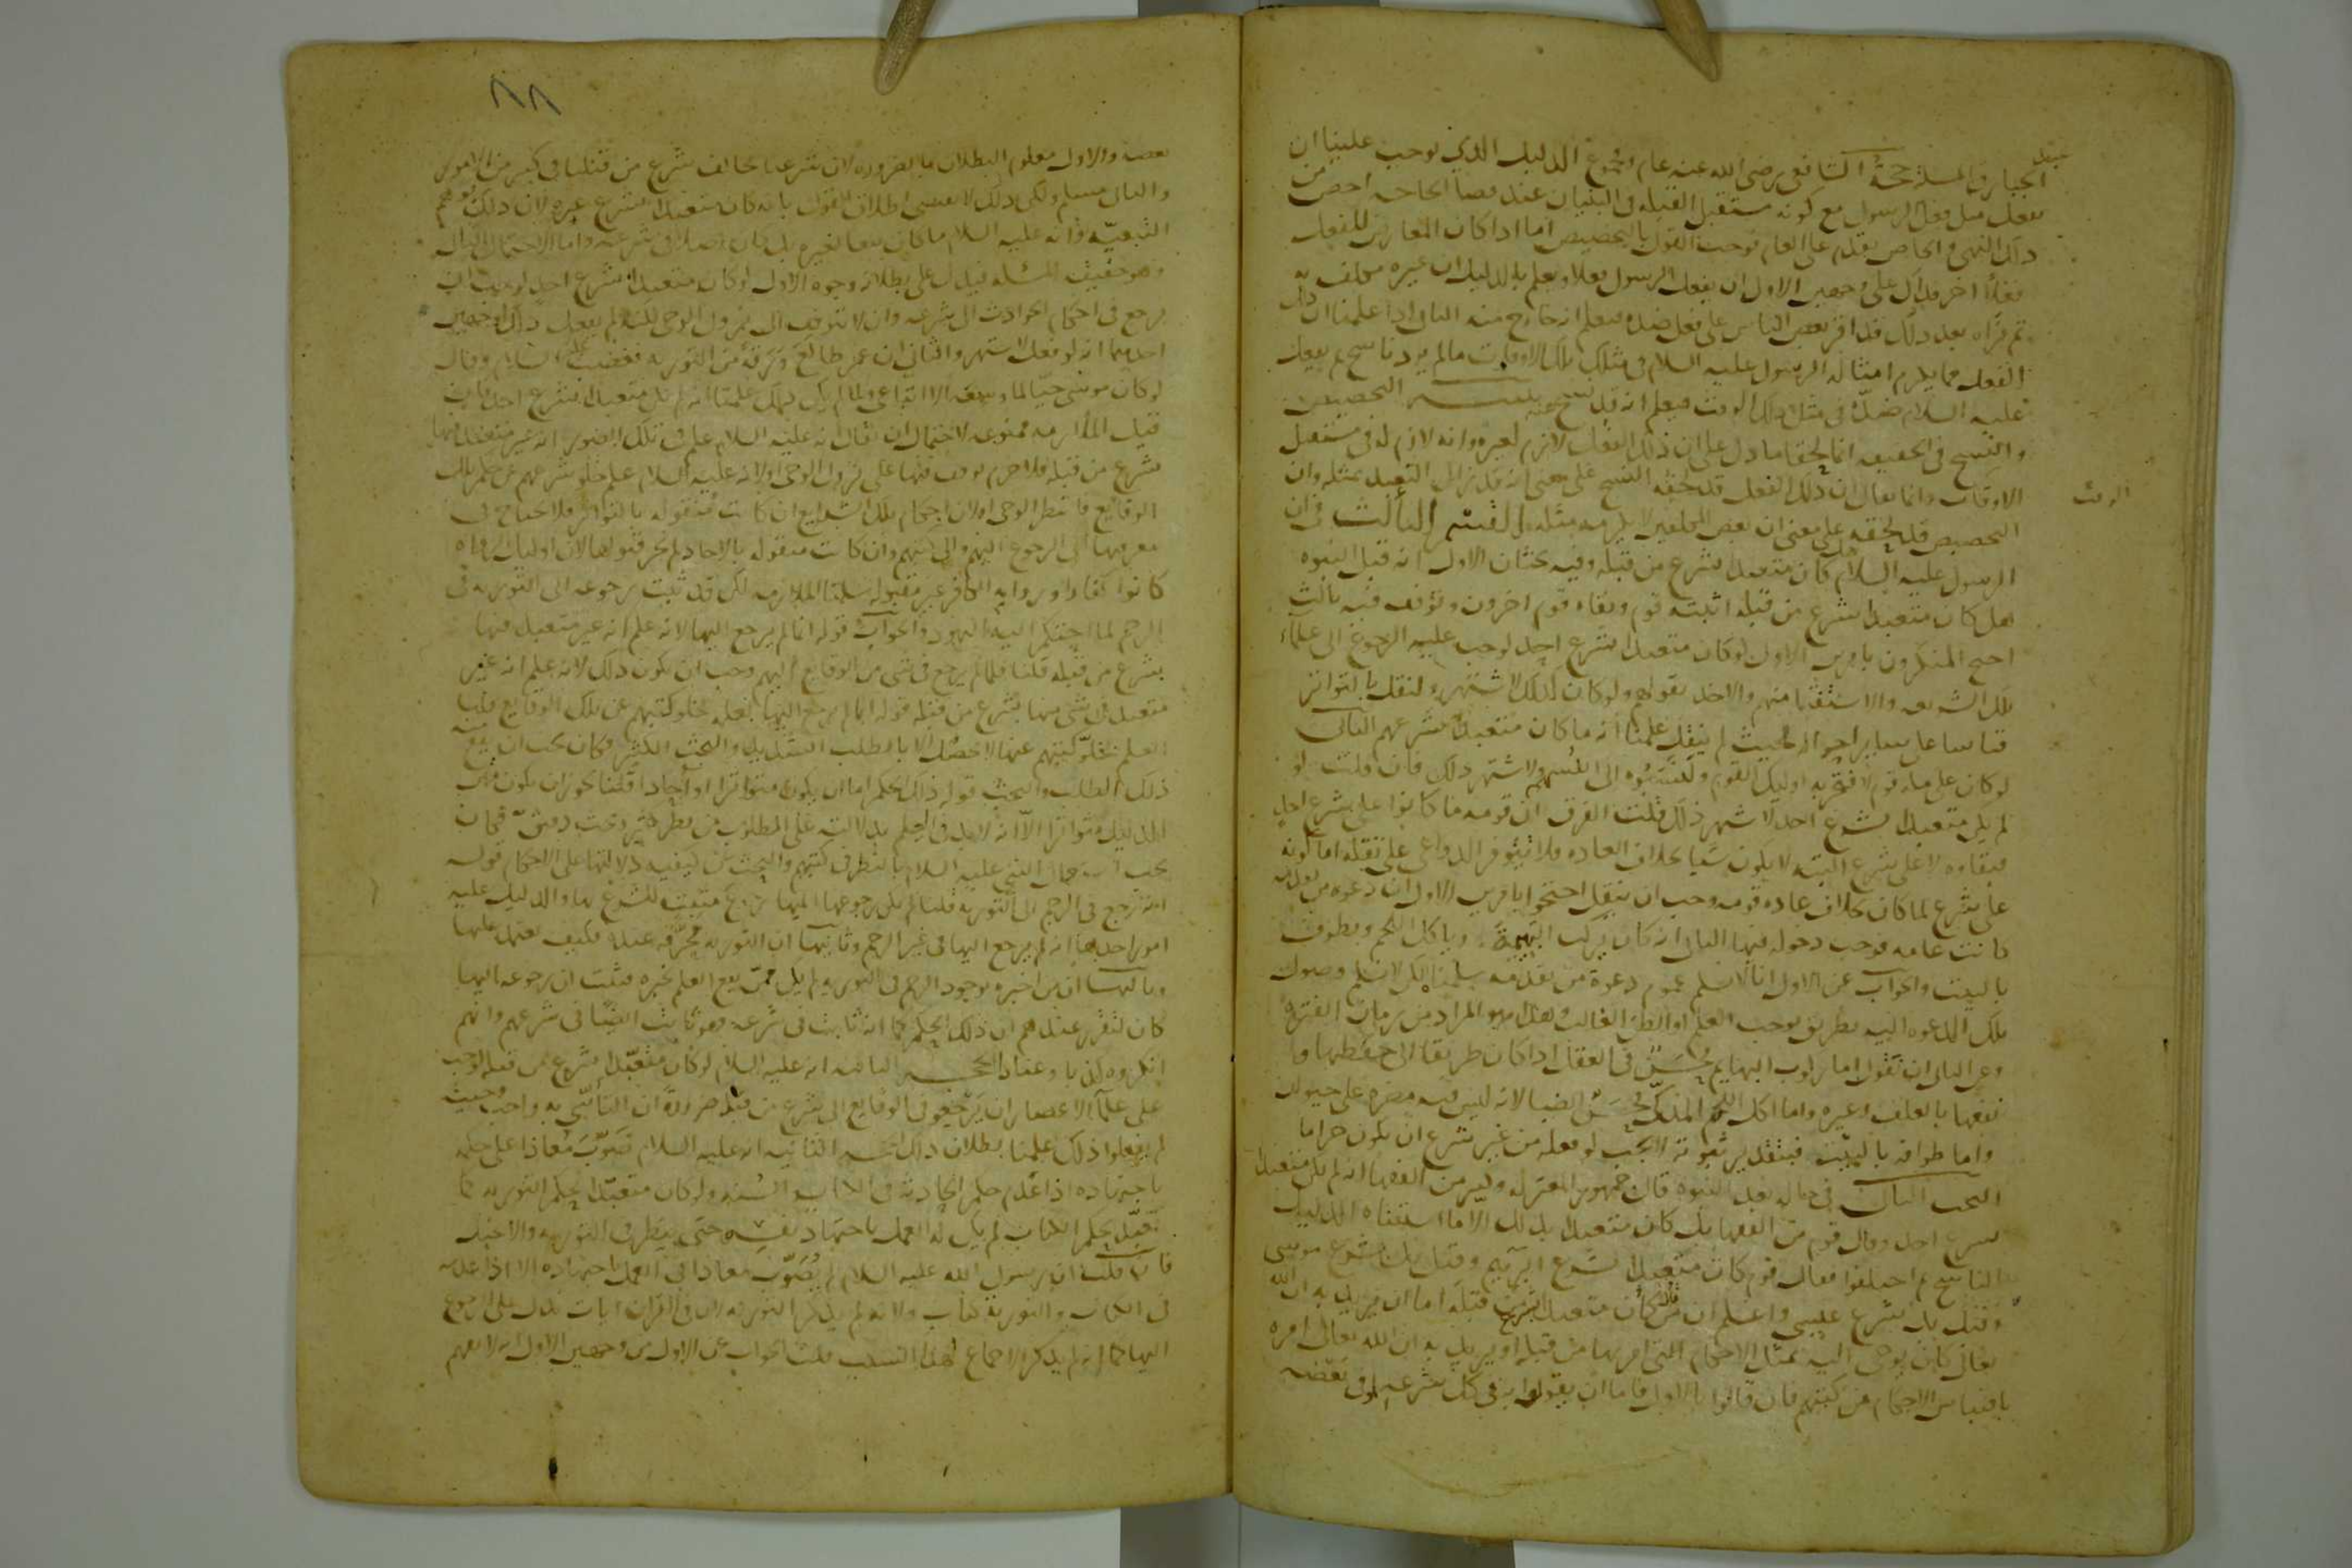 الجبار في المسلة حجة الشافعي رضي الله عنه عام ومجموع الدليل الذي يوجب علينا ان
نفعل مثل فعل الرسول مع كونه مستقبل القبلة في البنيان عند قضا الحاجه اخص من
ذلك النهي والخاص يقدم على العام فوجب القول بالتخصيص اما اذا كان المعارض للفعل
فعلا اخر فذاك على وجهين الاول ان يفعل الرسول فعلا ويعلم بالدليل ان غيره مكلف به
ثم نراه بعد ذلك قد اقر بعض الناس على فعل ضده فيعلم انه خارج منه الثاني اذا علمنا ان ذلك
الفعل مما يلزم امثاله الرسول عليه السلام في مثل تلك الاوقات ما لم يرد ناسخ ثم يفعل
عليه السلام ضده في مثل ذلك الوقت فيعلم انه قد نسخ عنه تنبيه التخصيص
والنسخ في الحقيقه انما لحقا ما دل على ان ذلك الفعل لازم لغيره وانه لازم له في مستقبل
الاوقات وانما يقال ان ذلك الفعل قد لحقه النسخ على معنى انه قد زال التعبد بمثله وان
التخصيص قد لحقه على معنى ان بعض المكلفين لا يلزمه مثله القسم الثالث في ان
الرسول عليه السلام هل كان متعبدا بشرع من قبله وفيه بحثان الاول انه قبل النبوه
هل كان متعبدا بشرع من قبله اثبته قوم ونفاه قوم اخرون وتوقف فيه ثالث
احتج المنكرون بامرين الاول لو كان متعبدا بشرع احد لوجب عليه الرجوع الى علماء
تلك الشريعه والاستفتا منهم والاخذ بقولهم ولو كان كذلك لاشتهر ولنقل بالتواتر
قياسا على ساير احواله فحيث لم ينقل علمنا انه ما كان متعبدا بشرعهم الثاني
لو كان على مله قوم لافتخر به اوليك القوم ولنسبوه الى انفسهم ولاشتهر ذلك فان قلت لو
لم يكن متعبدا بشرع احد لاشتهر ذلك قلت الفرق ان قومه ما كانوا على شرع احد
فبقاوه لا على شرع البته لا يكون شيا بخلاف العاده فلا تتوفر الدواعي على نقله اما كونه
على شرع لما كان بخلاف عاده قومه وجب ان ينقل احتجوا بامرين الاول ان دعوه من تقدمه
كانت عامه فوجب دخوله فيها الثاني انه كان يركب البهيمة وياكل اللحم ويطوف
بالبيت والجواب عن الاول انا لا نسلم عموم دعوة من تقدمه سلمنا لكن لا نسلم وصول
تلك الدعوه اليه بطريق يوجب العلم او الظن الغالب وهذا هو المراد من زمان الفترة
وعن الثاني ان نقول اما ركوب البهايم حسن في العقل اذا كان طريقا الى حفظها
نفعها بالعلف وغيره واما اكل اللحم المذكى فحسن ايضا لانه ليس فيه مضره على حيوان
واما طوافه بالبيت فبتقدير ثبوته لا يجب لو فعله من غير شرع ان يكون حراما
البحث الثاني في حاله بعد النبوه قال جمهور المعتزله وكثير من الفقها انه لم يكن متعبدا
بشرع احد وقال قوم من الفقها بل كان متعبدا بذلك الا ما استثناه الدليل
الناسخ ثم اختلفوا فقال قوم كان متعبدا بشرع ابرهيم وقيل بل بشرع موسى
وقيل بل بشرع عيسى واعلم ان من قال كان متعبدا بشرع من قبله اما ان يريد به ان الله
تعالى كان يوحي اليه بمثل الاحكام التي امر بها من قبله او يريد به ان الله تعالى امره
باقتباس الاحكام من كتبهم فان قالوا بالاول فاما ان يقولوا به في كل شرعه او في بعضه
الوقت
٨٨
بعضه والاول معلوم البطلان بالضروره لان شرعنا يخالف شرع من قبلنا في كثير من الامور
والثاني مسلم ولكن ذلك لا يقتضي اطلاق القول بانه كان متعبدا بشرع غيره لان ذلك يوهم
التبعيه وانه عليه السلام ما كان تبعا لغيره بل كان اصلا في شرعه واما الاحتمال الثاني
وهو حقيقه المسله فيدل على بطلانه وجوه الاول لو كان متعبدا بشرع احد لوجب ان
يرجع في احكام الحوادث الى شرعه وان لا يتوقف الى نزول الوحي لكنه لم يفعل ذلك لوجهين
احدهما انه لو فعل لاشتهر والثاني ان عمر طالع ورقة من التوريه فغضب عليه السلام وقال
لو كان موسى حيا لما وسعه الا اتباعي ولما لم يكن كذلك علمنا انه لم يكن متعبدا بشرع احد فان
قيل الملازمه ممنوعه لاحتمال ان يقال انه عليه السلام علم في تلك الصور انه غير متعبد فيها
بشرع من قبله فلا جرم توقف فيها على نزول الوحي او لانه عليه السلام علم خلو شرعهم عن حكم تلك
الوقايع فانتظر الوحي او لان احكام تلك الشرايع ان كانت منقوله بالتواتر فلا يحتاج في
معرفتها الى الرجوع اليهم والى كتبهم وان كانت منقوله بالاحاد لم يجز قبولها لان اوليك الرواه
كانوا كفارا وروايه الكافر غير مقبوله سلمنا الملازمه لكن قد ثبت رجوعه الى التوريه في
الرجم لما احتكم اليه اليهود والجواب قوله انما لم يرجع اليها لانه علم انه غير متعبد فيها
بشرع من قبله قلنا فلما لم يرجع في شي من الوقايع اليهم وجب ان يكون ذلك لانه علم انه غير
متعبد في شي منها بشرع من قبله قوله انما لم يرجع اليها لعلمه بخلو كتبهم عن تلك الوقايع قلنا
العلم بخلو كتبهم عنها لا يحصل الا بالطلب الشديد والبحث الكثير فكان يجب ان يقع منه
ذلك الطلب والبحث قوله ذلك الحكم اما ان يكون متواترا او احادا قلنا يجوز ان يكون متن
الدليل متواترا الا انه لابد في العلم بدلالته على المطلوب من نظر كثير وبحث دقيق فكان
يجب اشتغال النبي عليه السلام بالنظر في كتبهم والبحث عن كيفيه دلالتها على الاحكام قوله
انه رجع في الرجم الى التوريه قلنا لم يكن رجوعه اليها رجوع مثبت للشرع بها والدليل عليه
امور احدها انه لم يرجع اليها في غير الرجم وثانيها ان التوريه محرفه عنده فكيف يعتمد عليها
وثالثها ان من اخبره بوجود الرجم في التوريه لم يكن ممن يقع العلم بخبره فثبت ان رجوعه اليها
كان لتقرير عندهم ان ذلك الحكم كما انه ثابت في شرعه فهو ثابت ايضا في شرعهم وانهم
انكروه كذبا وعنادا الحجه الثانيه انه عليه السلام لو كان متعبدا بشرع من قبله لوجب
على علماء الاعصار ان يرجعوا في الوقايع الى شرع من قبله ضرورة ان التأسي به واجب وحيث
لم يفعلوا ذلك علمنا بطلان ذلك الحجه الثالثه انه عليه السلام صوب معاذا على حكمه
باجتهاده اذا عدم حكم الحادثه في الكتاب والسنه ولو كان متعبدا بحكم التوريه كما
تعبد بحكم الكتاب لم يكن له العمل باجتهاد نفسه حتى ينظر في التوريه والانجيل
فان قلت ان رسول الله عليه السلام لم يصوب معاذا في العمل باجتهاده الا اذا عدمه
في الكتاب والتوريه كتاب ولانه لم يذكر التوريه لان في القران ايات تدل على الرجوع
اليها كما انه لم يذكر الاجماع لهذا السبب قلت الجواب عن الاول من وجهين الاول انه لا يفهم